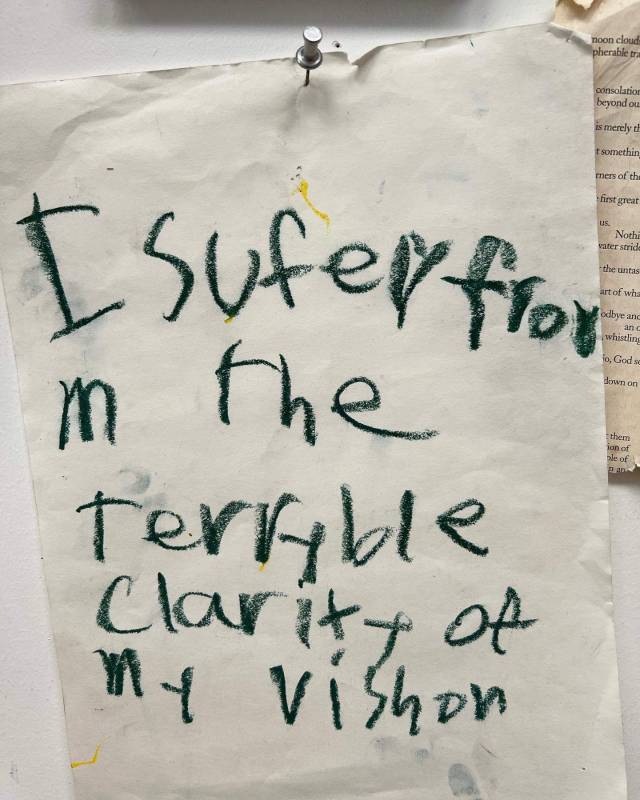 I sufer from
m the
terryble
clarity of
my vishon
noon cloud
pherable tra
consolation
beyond ou
is merely th
t something
rners of the
first great
us.
Nothi
water stride
the untas
art of wha
odbye and
an o
whistling
io, God s
down on
them
ion of
ole of
n an